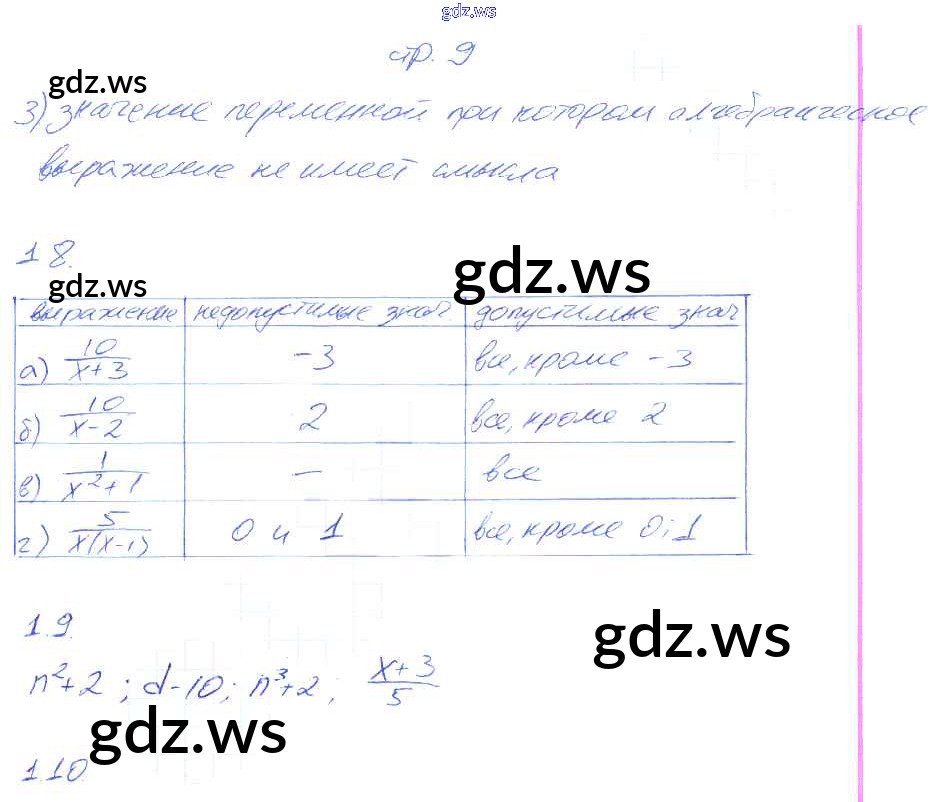 gdz.ws
стр. 9
gdz.ws
3) значение переменной при котором алгебраическое
выражение не имеет смысла
1.8.
gdz.ws
gdz.ws
выражение | недопустимые знач. | допустимые знач
а) 10/(x+3) | -3 | все, кроме -3
б) 10/(x-2) | 2 | все, кроме 2
в) 1/(x²+1) | — | все
г) 5/(x(x-1)) | 0 и 1 | все, кроме 0; 1
1.9.
gdz.ws
n²+2 ; d-10; n³+2 ; (x+3)/5
gdz.ws
1.10.